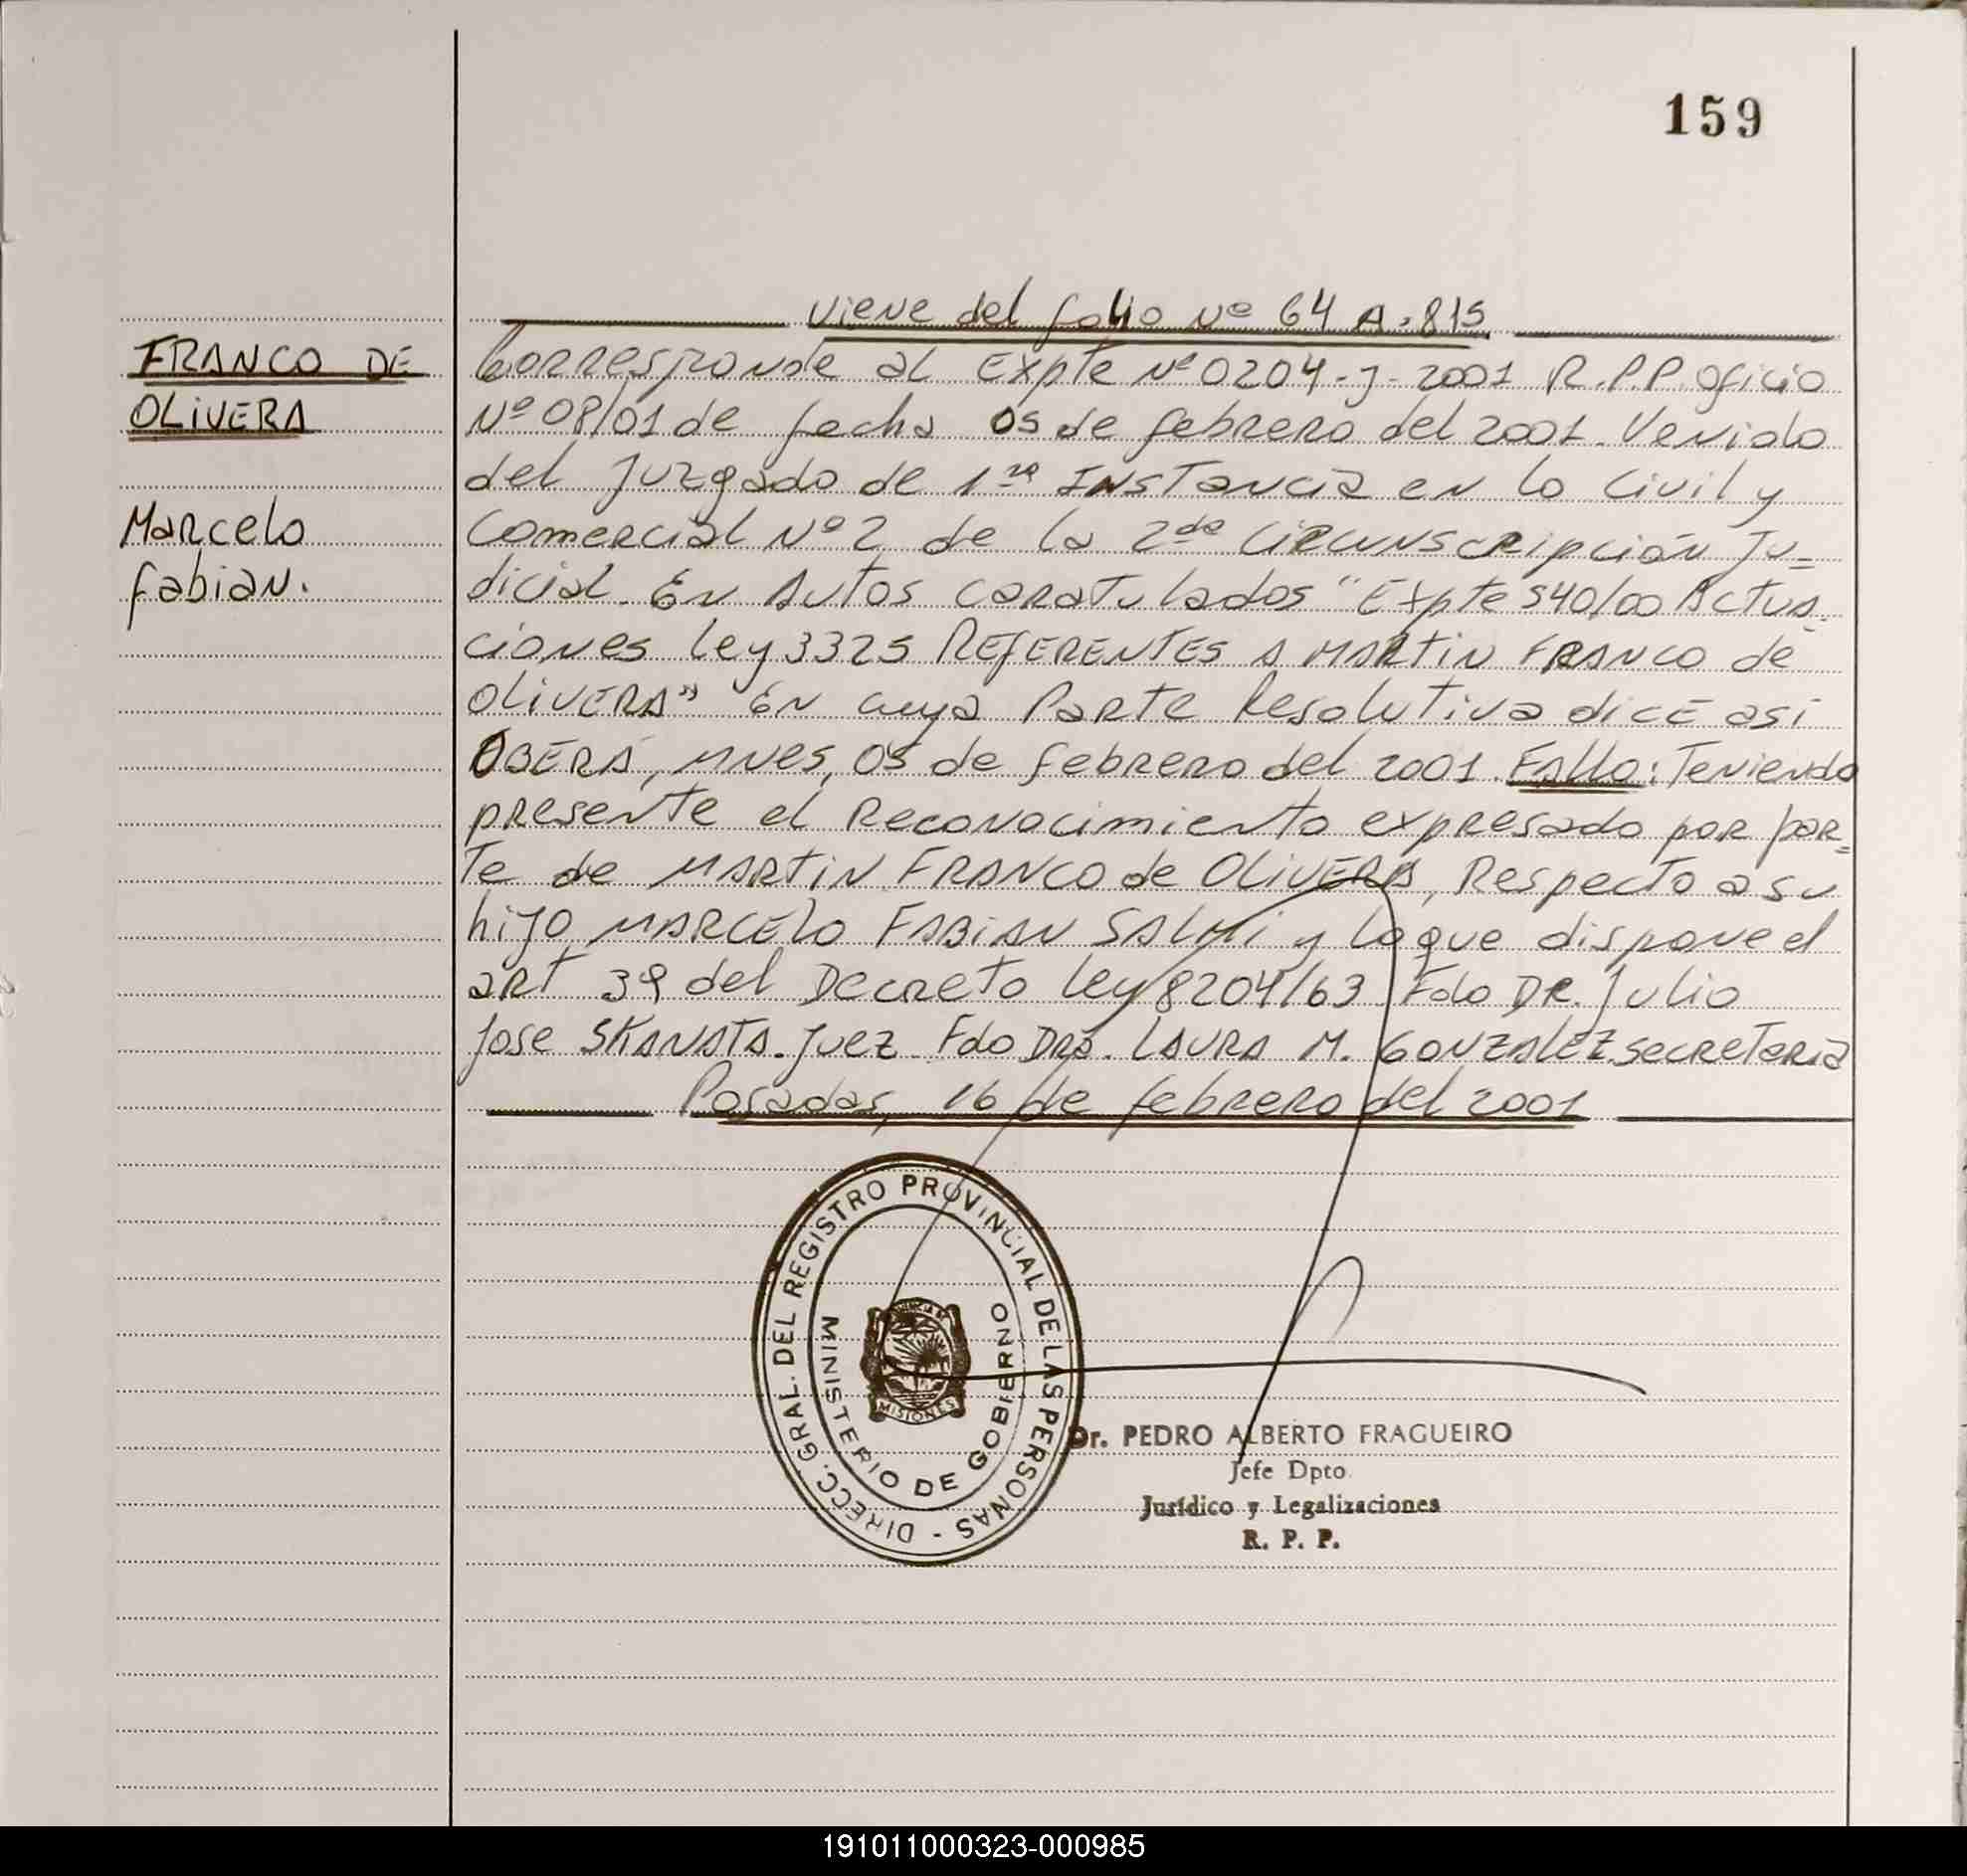 159
viene del folio Nº 64 A. 815
FRANCO DE
OLIVERA
Marcelo
fabian.
Corresponde al Expte Nº 0204-J-2001 R.P.P. oficio
Nº 08/01 de fecha 05 de febrero del 2001. Venido
del Juzgado de 1ra INSTancia en lo Civil y
Comercial Nº 2 de la 2da CIRCUNSCRIpción Ju=
dicial. En Autos caratulados "Expte 540/00 Actua-
ciones Ley 3325 REfERENTES A MARTIN FRANCO de
OLIVERA" En cuya Parte Resolutiva dice asi
OBERÁ, Mnes, 05 de febrero del 2001. Fallo: Teniendo
presente el Reconocimiento expresado por par=
Te de MARTIN FRANCO de OLIVERA, Respecto a su
hijo MARCELO FABIAN SALMI y lo que dispone el
art 39 del Decreto Ley 8204/63 Fdo DR. Julio
Jose SKANATA. Juez Fdo Dra. LAURA M. GONZALEZ. Secretaria
Posadas, 16 de febrero del 2001
DIRECC. GRAL. DEL REGISTRO PROVINCIAL DE LAS PERSONAS -
MINISTERIO DE GOBIERNO
MISIONES
Dr. PEDRO ALBERTO FRAGUEIRO
Jefe Dpto.
Jurídico y Legalizaciones
R. P. P.
191011000323-000985